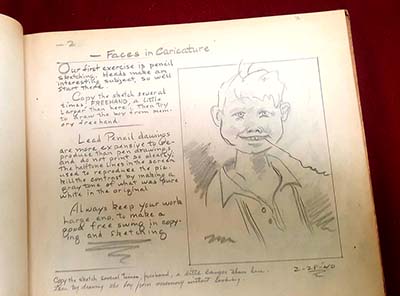 - 2 -
— Faces in Caricature
Our first exercise is pencil
sketching. Heads make an
interesting subject, so we'll
start there.
Copy the sketch several
times, FREEHAND, a little
larger than here; then try
to draw the boy from mem-
ory freehand
Lead Pencil drawings
are more expensive to re-
produce than pen drawings,
and do not print so clearly.
The halftone lines in the screen
used to reproduce the pic
kill the contrast by making a
gray tone of what was pure
white in the original
Always keep your work
large eno. to make a
good free swing in copy-
ing and sketching
Copy the sketch several times, freehand, a little larger than here
then try drawing the boy from memory without looking.